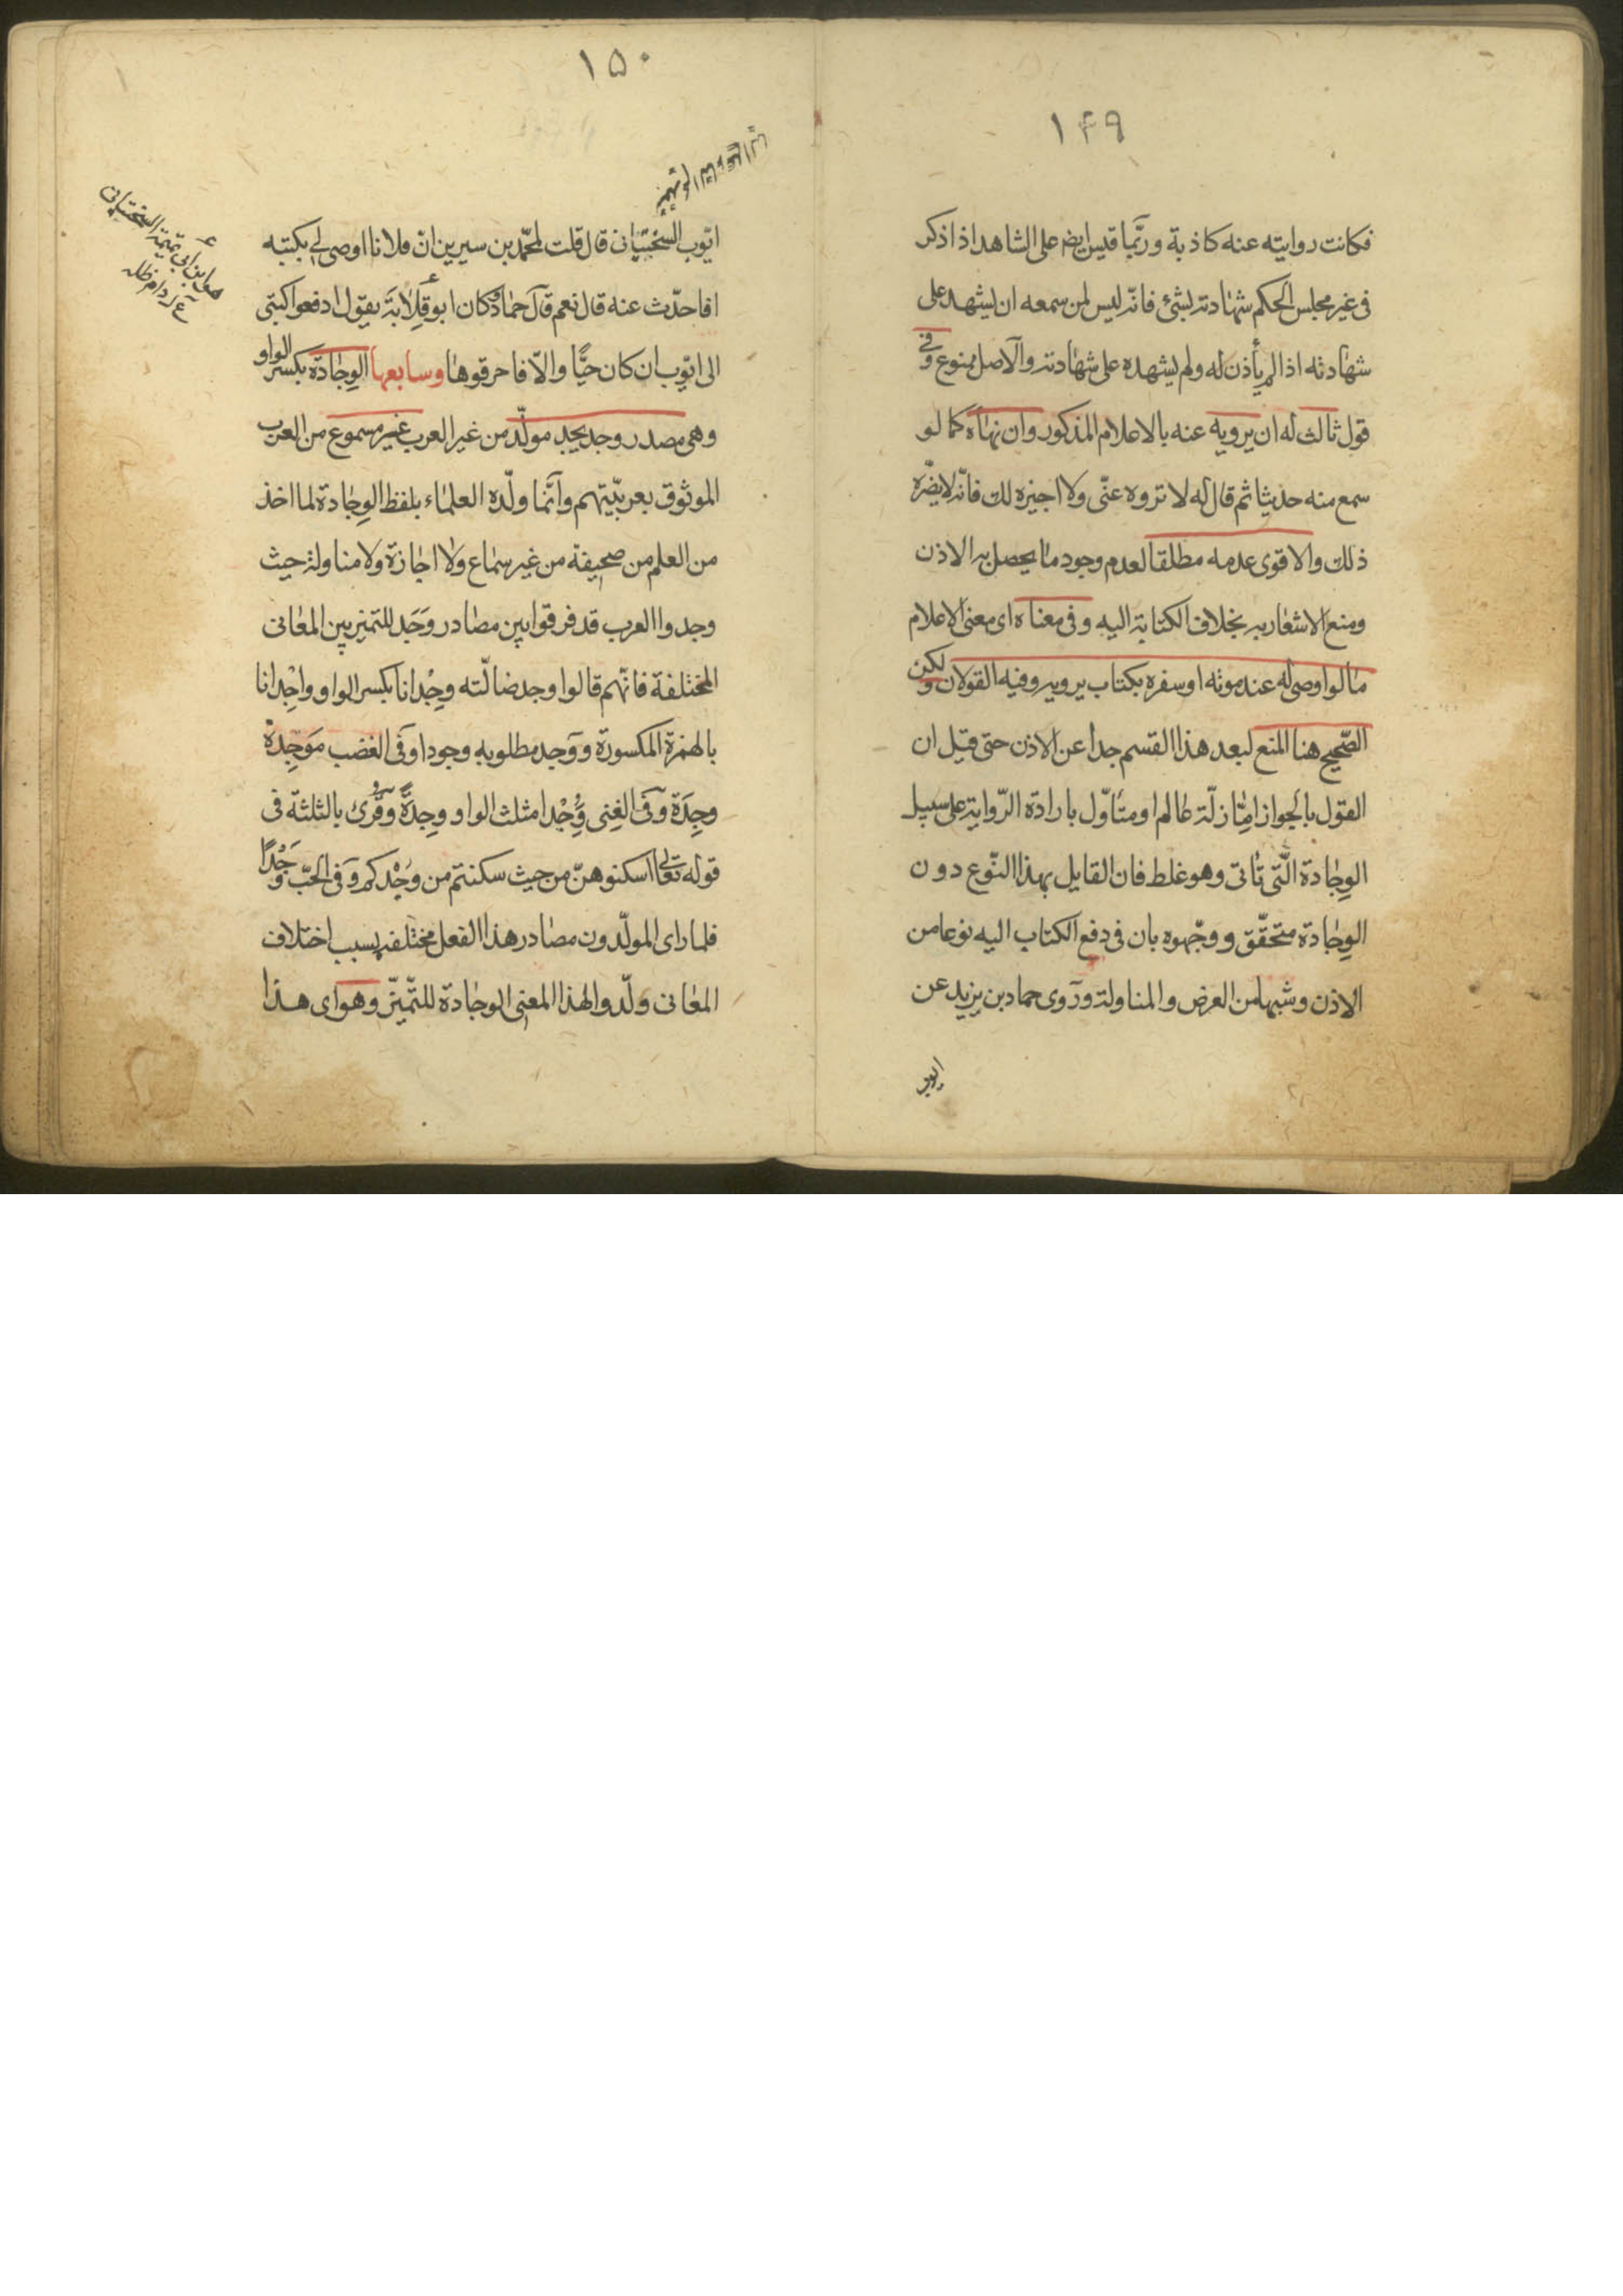 ١٤٩
فكانت روايته عنه كاذبة وربّما قيس ايضم على الشاهد اذا ذكر
فى غير مجلس الحكم شهادته بشئ فانّه ليس لمن سمعه ان يشهد على
شهادته اذا لم يأذن له ولم يشهده على شهادته والاصل ممنوع وفى
قول ثالث له ان يرويه عنه بالاعلام المذكور وان نهاه كما لو
سمع منه حديثا ثم قال له لا تروه عنّى ولا اجيزه لك فانّه لا يضرّه
ذلك والاقوى عدمه مطلقا لعدم وجود ما يحصل به الاذن
ومنع الاشعار به بخلاف الكتابة اليه وفى معناه اى معنى الاعلام
ما لو اوصى له عند موته او سفره بكتاب يرويه وفيه القولان ولكن
الصّحيح هنا المنع لبعد هذا القسم جدا عن الاذن حتى قيل ان
القول بالجواز امّا زلّة عالم او متأوّل بارادة الرّواية على سبيل
الوِجادة الّتى تأتى وهو غلط فان القايل بهذا النّوع دون
الوِجادة متحقّق ووجّهوه بان فى دفع الكتاب اليه نوعا من
الاذن وشبها من العرض والمناولة وروى حماد بن يزيد عن
ايوب
١٥٠
ايّوب السختيانى قال قلت لمحمّد بن سيرين انّ فلانا اوصى لى بكتبه
افاحدّث عنه قال نعم قال حماد وكان ابو قِلابَة يقول ادفعوا كتبى
الى ايّوب ان كان حيًّا والّا فاحرقوها وسابعها الوِجادة بكسر الواو
وهى مصدر وجد يجد مولّد من غير العرب غير مسموع من العرب
الموثوق بعربيّتهم وانّما ولّده العلماء بلفظ الوِجادة لما اخذ
من العلم من صحيفة من غير سماع ولا اجازة ولا مناولة حيث
وجدوا العرب قد فرقوا بين مصادر وَجَد للتميز بين المعانى
المختلفة فانّهم قالوا وجد ضالّته وِجْدانا بكسر الواو واجْدانا
بالهمزة المكسورة ووجد مطلوبه وجودا وفى الغضب مَوجِدة
وجِدَة وفى الغِنى وُجْدا مثلث الواو وجِدَةً وقُرئ بالثلثة فى
قوله تعالى اسكنوهنّ من حيث سكنتم من وُجْدكم وفى الحبّ وَجْدًا
فلما راى المولّدون مصادر هذا الفعل مختلفه بسبب اختلاف
المعانى ولّدوا لهذا المعنى الوجادة للتّميّز وهو اى هذا
هو ابن أبى تميمة السختيانى